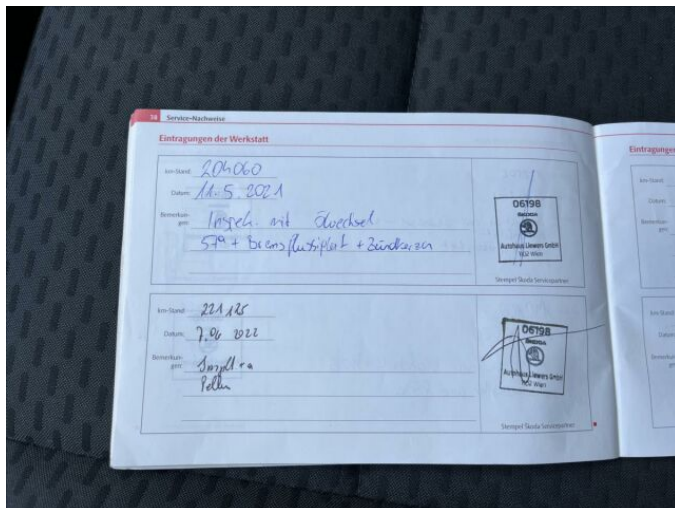 38 Service-Nachweise
Eintragungen der Werkstatt
km-Stand: 204060
Datum: 11.5.2021
Bemerkun-
gen: Inspek. mit Ölwechsel
+ Bremsflüssigkeit + Zündkerzen
06198
ŠKODA
Autohaus Liewers GmbH
Wien
Stempel Škoda Servicepartner
km-Stand: 221125
Datum: 7.06 2022
Bemerkun-
gen:
06198
ŠKODA
Autohaus Liewers GmbH
Wien
Stempel Škoda Servicepartner
Eintragungen
km-Stand
Datum
Bemerkun-
gen
km-Stand
Datum
Bemerkun-
gen